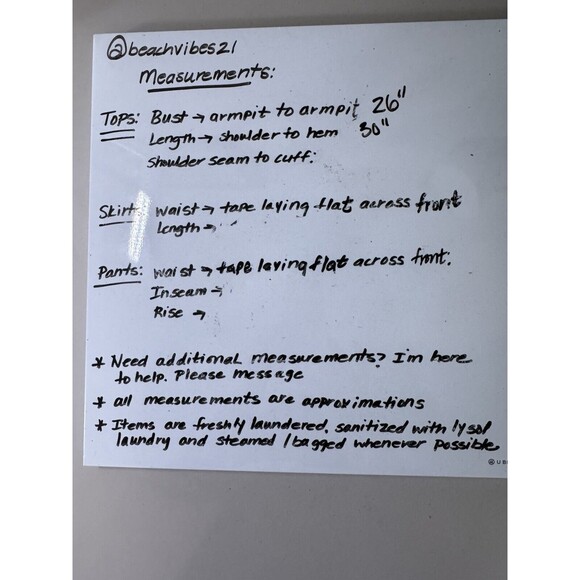 @beachvibes21
Measurements:
Tops: Bust → armpit to armpit 26"
Length → shoulder to hem 30"
Shoulder seam to cuff:
Skirt: waist → tape laying flat across front
Length →
Pants: waist → tape laying flat across front.
Inseam →
Rise →
* Need additional measurements? I'm here
to help. Please message
* all measurements are approximations
* Items are freshly laundered, sanitized with lysol
laundry and steamed / bagged whenever possible